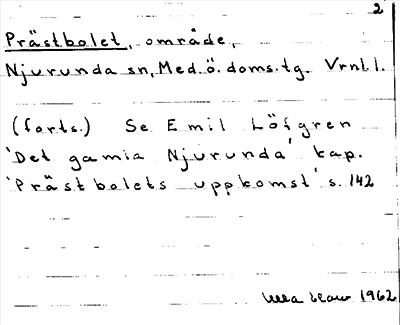 2
Prästbolet, område,
Njurunda sn, Med. ö. doms. tg. Vrnl. l.
(forts.) Se Emil Löfgren
'Det gamla Njurunda' kap.
'Prästbolets uppkomst' s. 142
1962